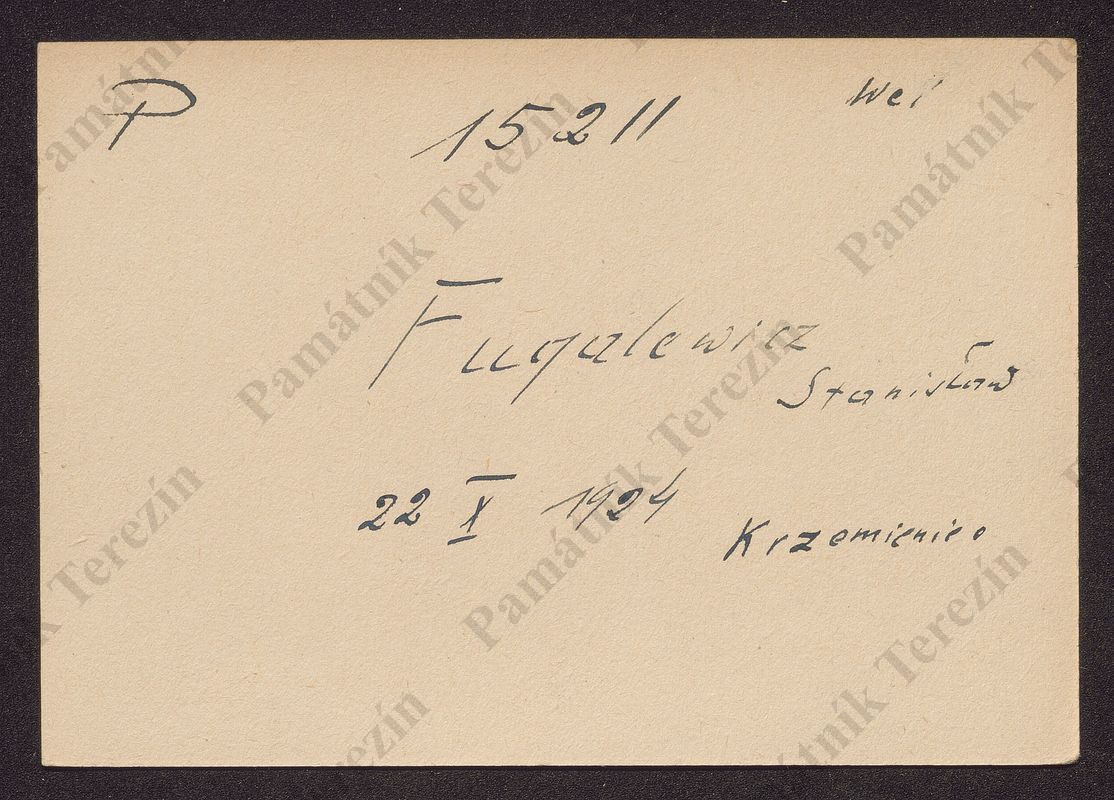 P 15211 Wel
Fugalewicz
Stanisław
22 X 1924
Krzemieniec
Památník Terezín
Památník Terezín
Památník Terezín
Památník Terezín
Památník Terezín